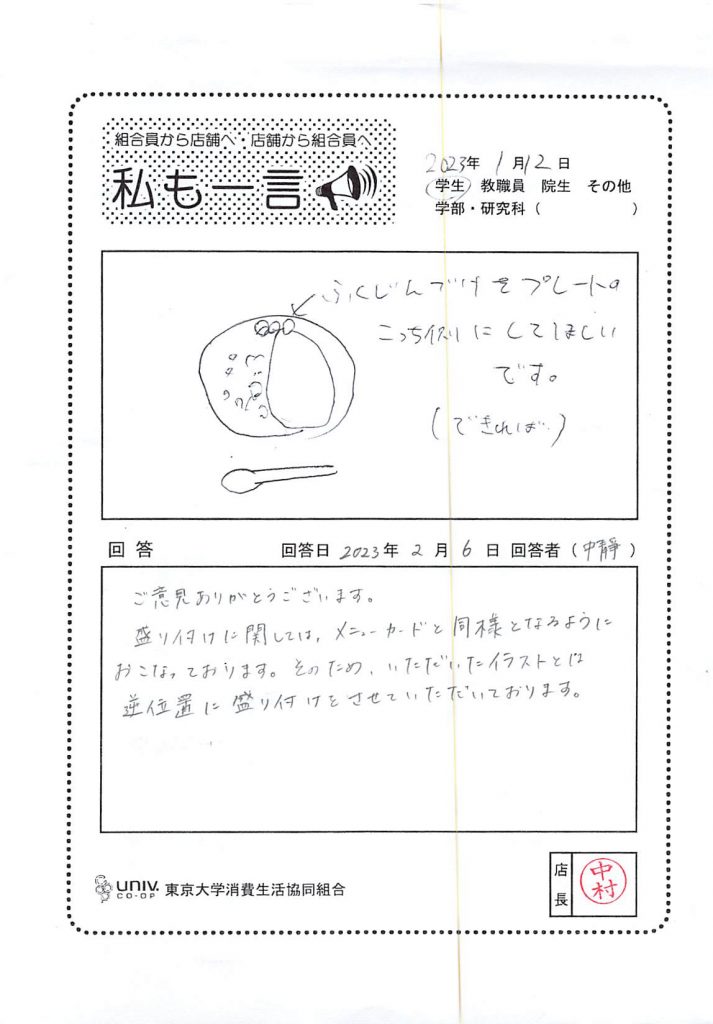 組合員から店舗へ・店舗から組合員へ
私も一言
2023年 1月12日
学生 教職員 院生 その他
学部・研究科（ ）
ふくじんづけをプレートの
こっち側にしてほしい
です。
（できれば）
回答 回答日 2023年 2月 6日 回答者（中靜）
ご意見ありがとうございます。
盛り付けに関しては、メニューカードと同様となるように
おこなっております。そのため、いただいたイラストとは
逆位置に盛り付けとさせていただいております。
UNIV. CO-OP 東京大学消費生活協同組合
店長 中村